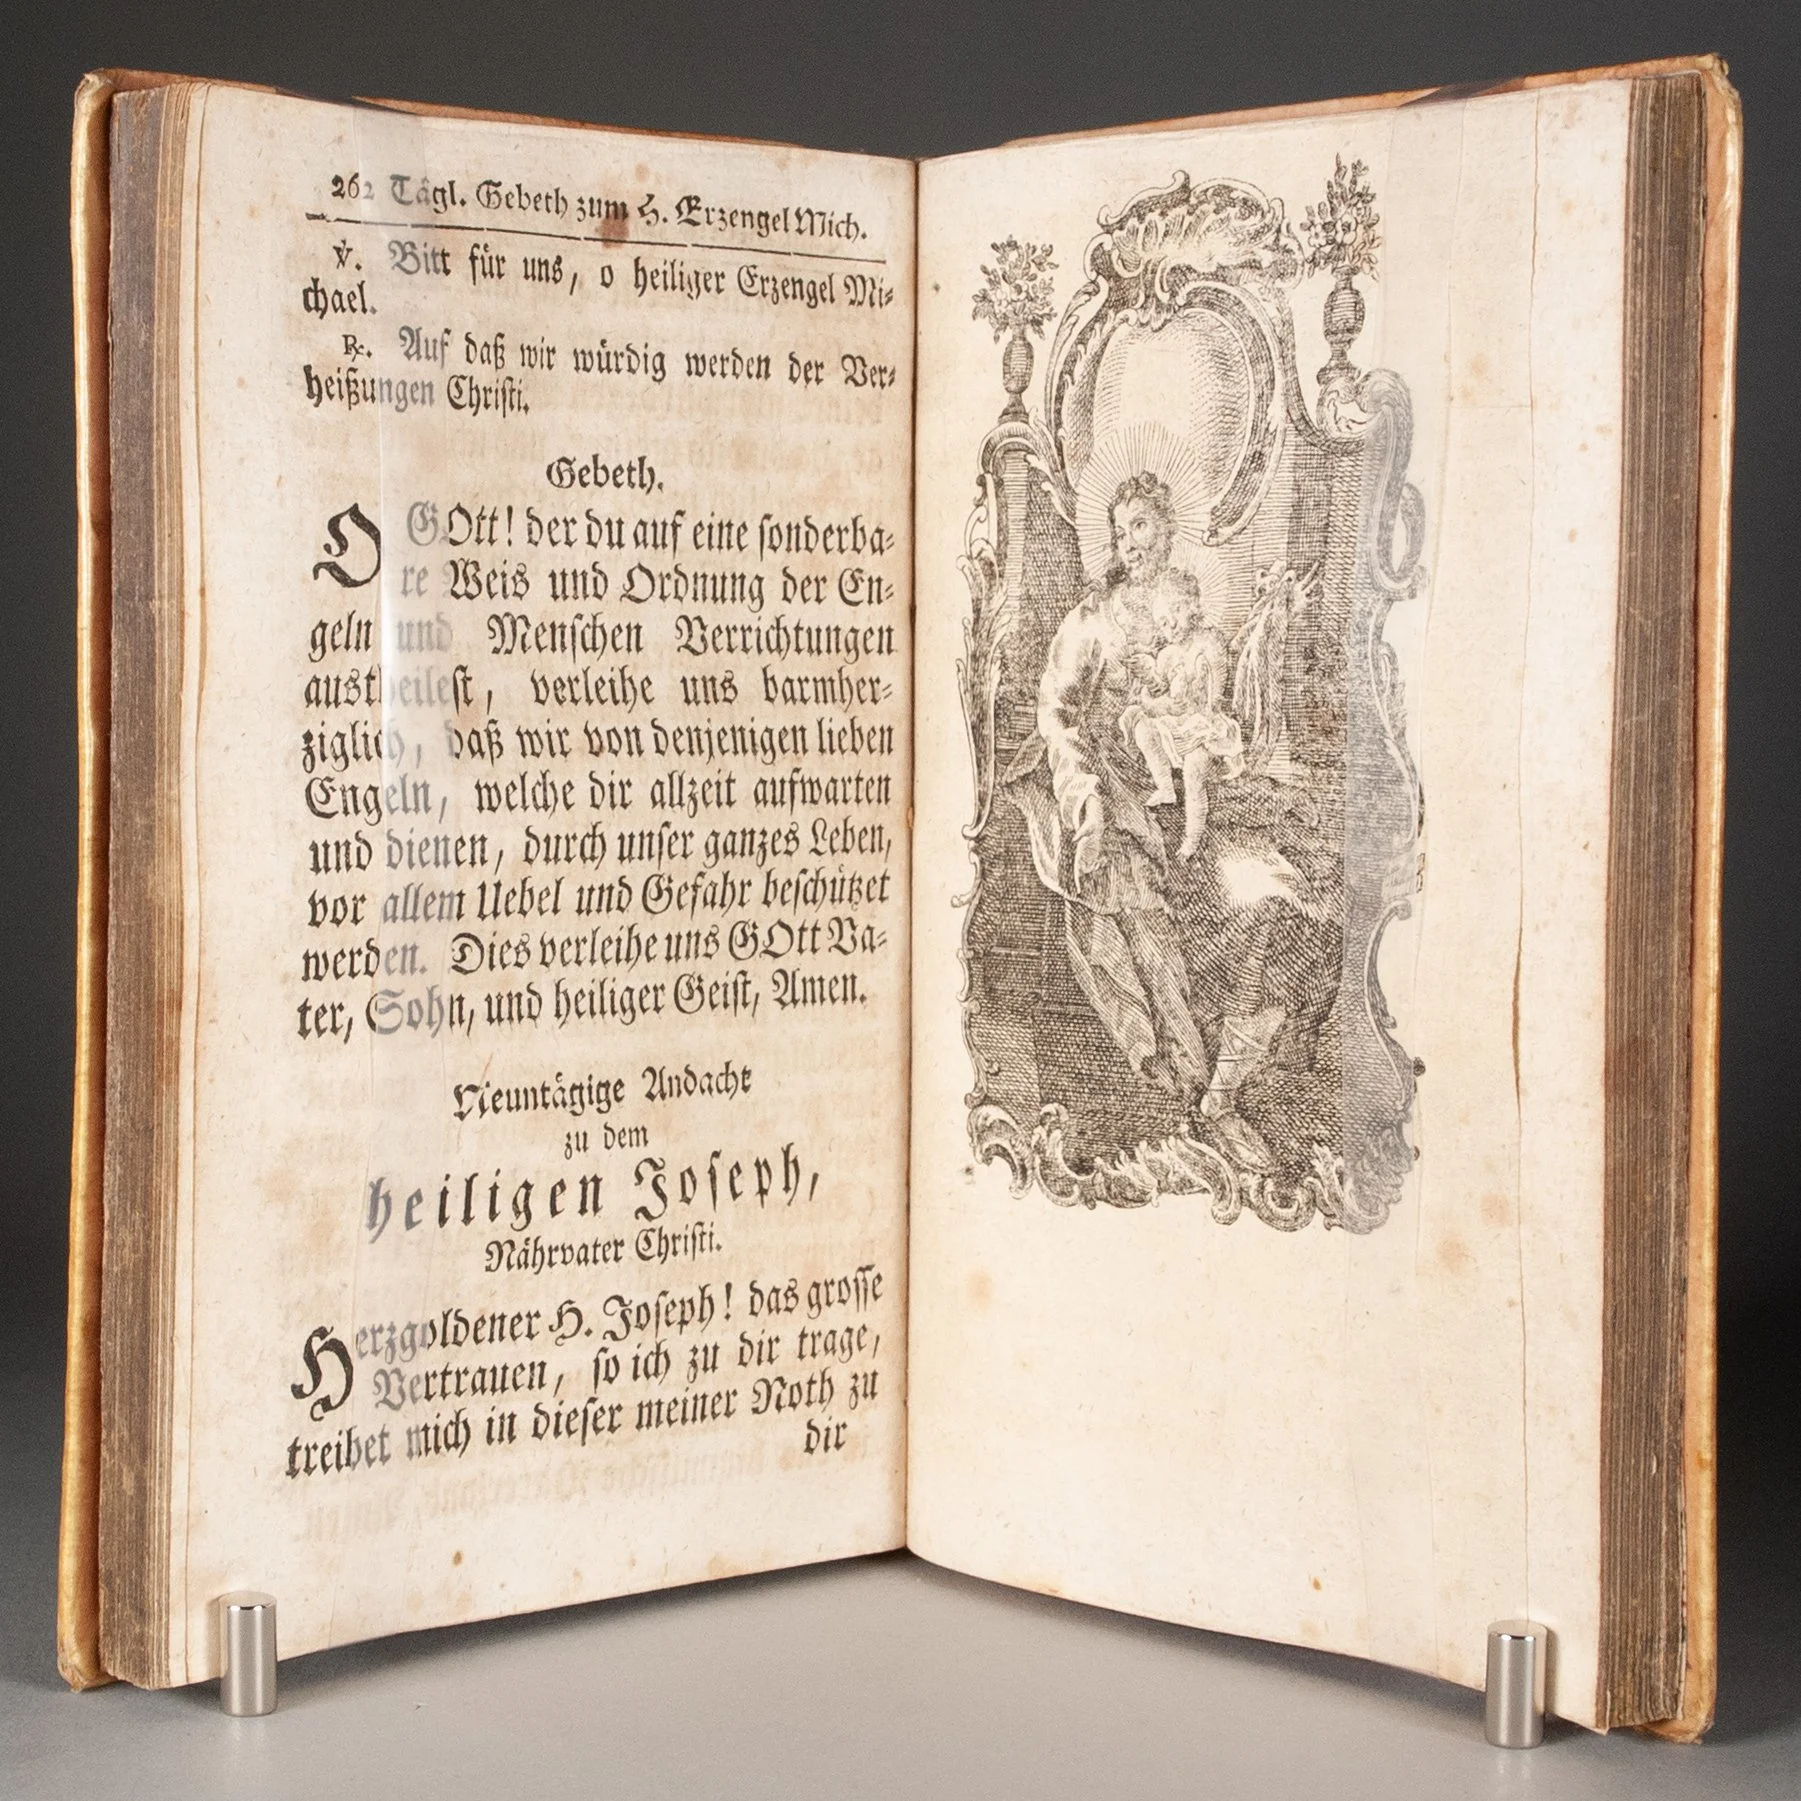 262 Tägl. Gebeth zum H. Erzengel Mich.
℣. Bitt für uns, o heiliger Erzengel Mi⸗
chael.
℞. Auf daß wir würdig werden der Ver⸗
heißungen Christi.
Gebeth.
O GOtt! der du auf eine sonderba⸗
re Weis und Ordnung der En⸗
geln und Menschen Verrichtungen
austheilest, verleihe uns barmher⸗
ziglich, daß wir von denjenigen lieben
Engeln, welche dir allzeit aufwarten
und dienen, durch unser ganzes Leben,
vor allem Uebel und Gefahr beschützet
werden. Dies verleihe uns GOtt Va⸗
ter, Sohn, und heiliger Geist, Amen.
Neuntägige Andacht
zu dem
heiligen Joseph,
Nährvater Christi.
Herzgoldener H. Joseph! das grosse
Vertrauen, so ich zu dir trage,
treibet mich in dieser meiner Noth zu
dir